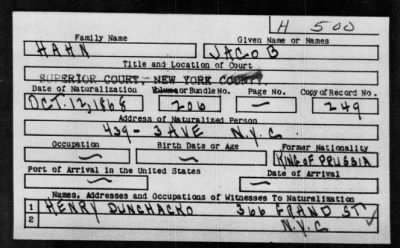 H 500
Family Name Given Name or Names
HAHN JACOB
Title and Location of Court
SUPERIOR COURT, NEW YORK COUNTY.
Date of Naturalization Volume or Bundle No. Page No. Copy of Record No.
OCT. 12, 1868 206 — 249
Address of Naturalized Person
439 - 3 AVE N.Y.C.
Occupation Birth Date or Age Former Nationality
— — KING OF PRUSSIA
Port of Arrival in the United States Date of Arrival
— —
Names, Addresses and Occupations of Witnesses To Naturalization
1 HENRY DUNCHACHO 366 GRAND ST
2 N.Y.C.